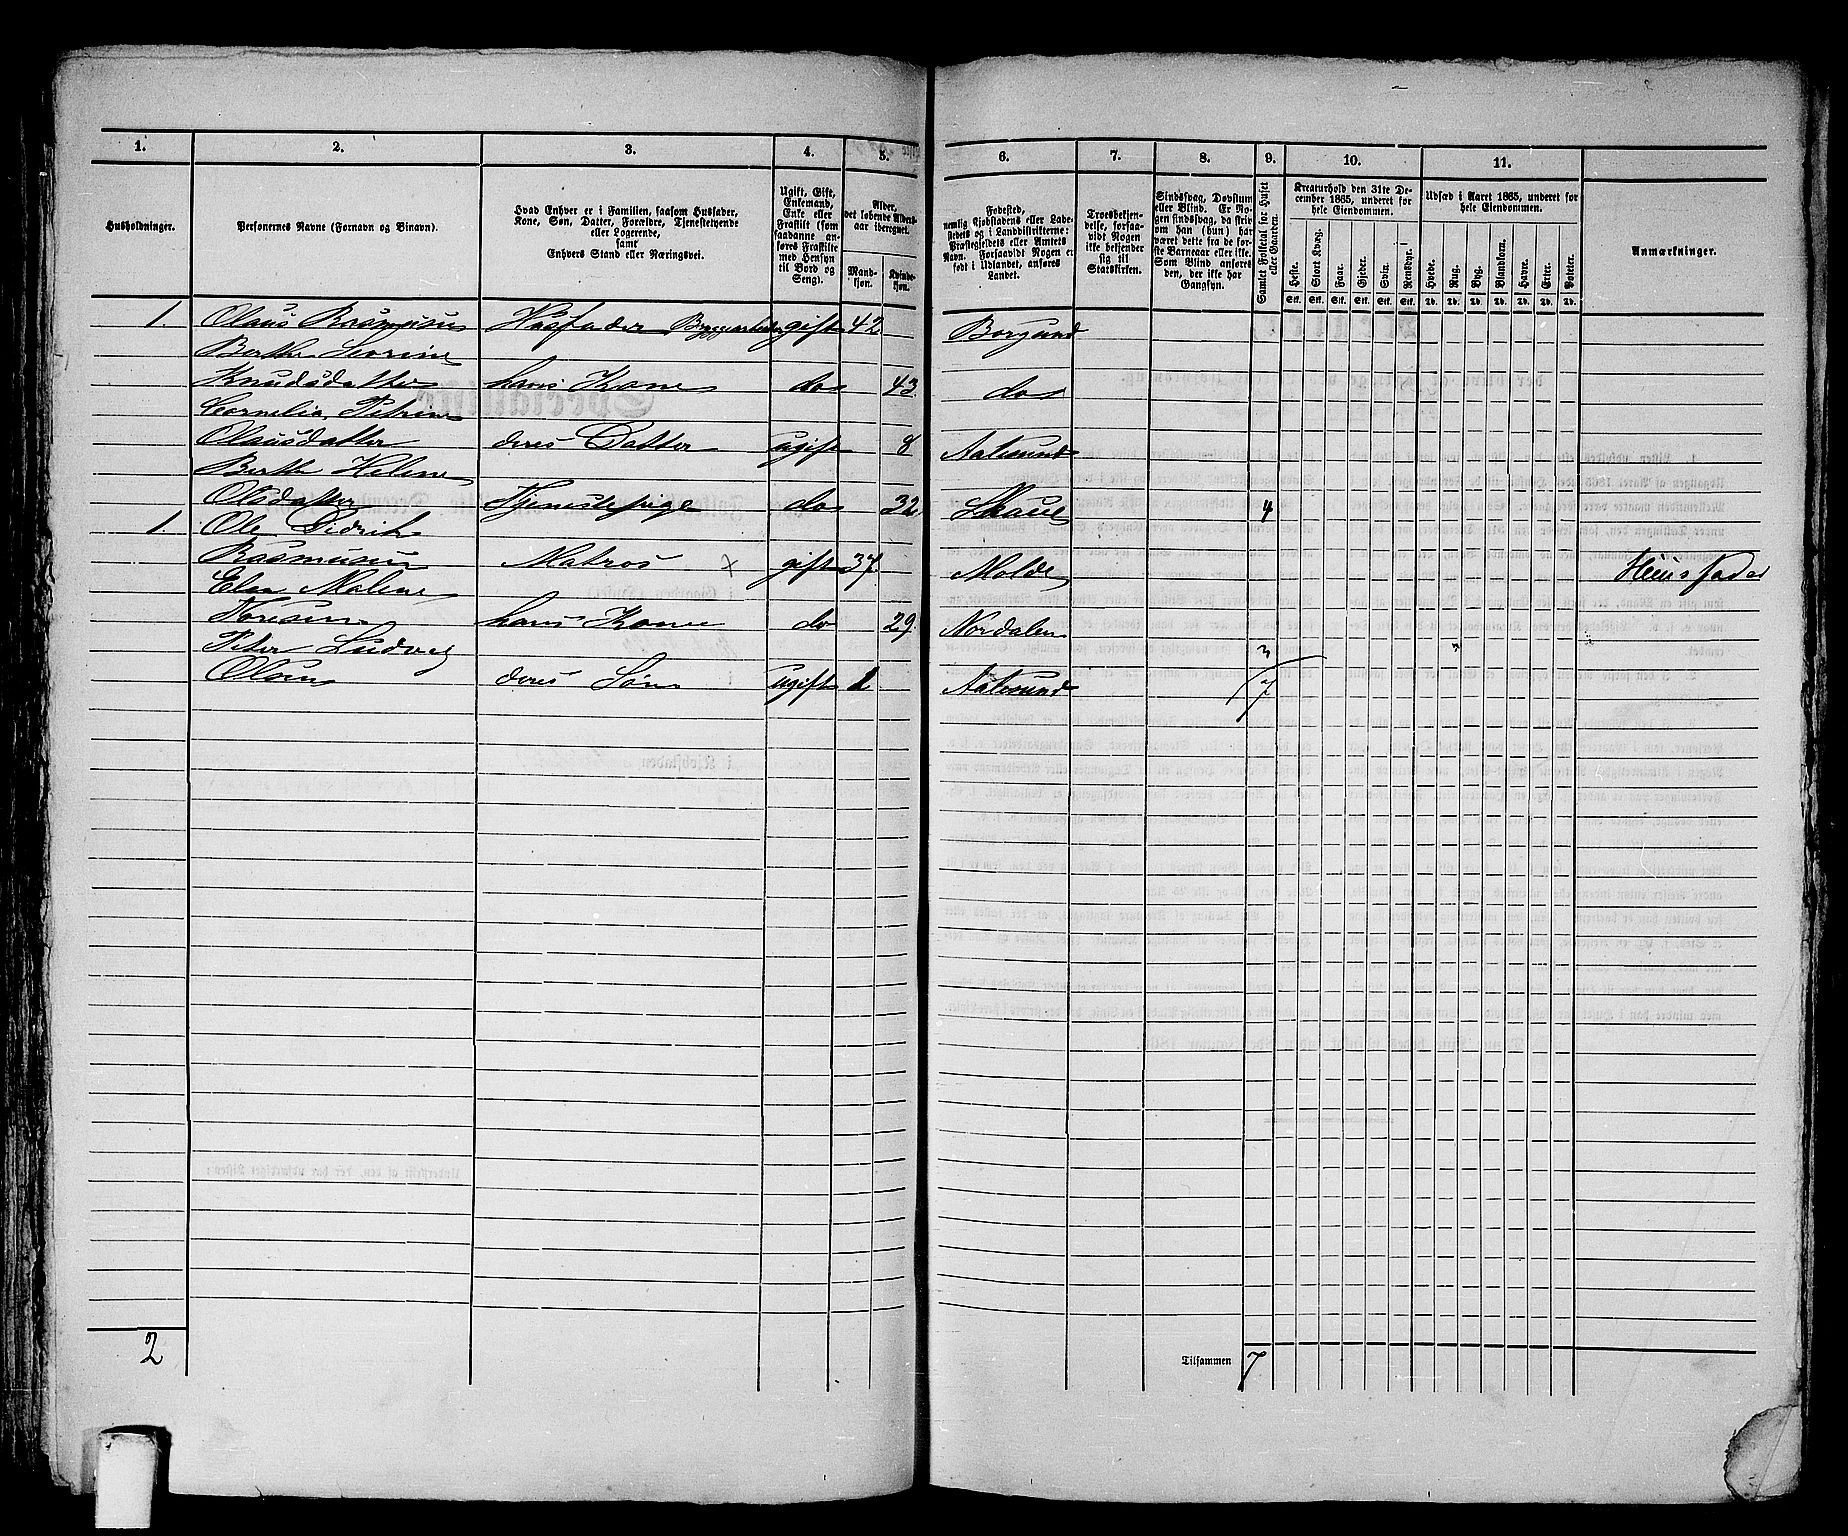 1. 2. 3. 4. 5. 6. 7. 8. 9. 10. 11.
Husholdninger.
Personernes Navne (Fornavn og Binavn).
Hvad Enhver er i Familien, saasom Husfader,
Kone, Søn, Datter, Forældre, Tjenestetyende
eller Logerende,
samt
Enhvers Stand eller Næringsvei.
Ugift, Gift,
Enkemand,
Enke eller
Fraskilt (som
saadanne an-
føres Fraskilte
med Hensyn
til Bord og
Seng).
Alder,
det løbende Alders-
aar iberegnet.
Mand-
kjøn.
Kvinde-
kjøn.
Fødested,
nemlig Kjøbstadens eller Lade-
stedets og i Landdistrikterne:
Præstegjeldets eller Amtets
Navn. Forsaavidt Nogen er
født i Udlandet, anføres
Landet.
Troesbekjen-
delse, forsaa-
vidt Nogen
ikke bekjender
sig til
Statskirken.
Sindssvag, Døvstum
eller Blind. Er No-
gen sindssvag, da skri-
ves om han (hun) har
været dette fra de før-
ste Barneaar eller ikke.
Som Blind anføres
den, der ikke har
Gangsyn.
Samlet Folketal for Huset
eller Gaarden.
Kreaturhold den 31te De-
cember 1865, underet for
hele Eiendommen.
Heste.
Stort Kvæg.
Faar.
Gjeder.
Svin.
Rensdyr.
Stk. Stk. Stk. Stk. Stk. Stk.
Udsæd i Aaret 1865, underet for
hele Eiendommen.
Hvede.
Rug.
Byg.
Blandkorn.
Havre.
Erter.
Poteter.
Td. Td. Td. Td. Td. Td. Td.
Anmærkninger.
1. Olaus Rasmusen Husfader gift 42 Borgund
Berthe Severine
Knudsdatter hans Kone do 43 do
Cornelia Petrine
Olausdatter deres Datter ugift 8 Aalesund
Berthe Helene
Olsdatter Tjenestepige do 32 Skoue 4
1. Ole Didrik
Rasmusen Matros x gift 37 Molde Huusfader
Elen Malene
hans Kone do 29 Nordalen
Peter Ludvig 3
Olsen deres Søn ugift 1 Aalesund 7
2 Tilsammen 7